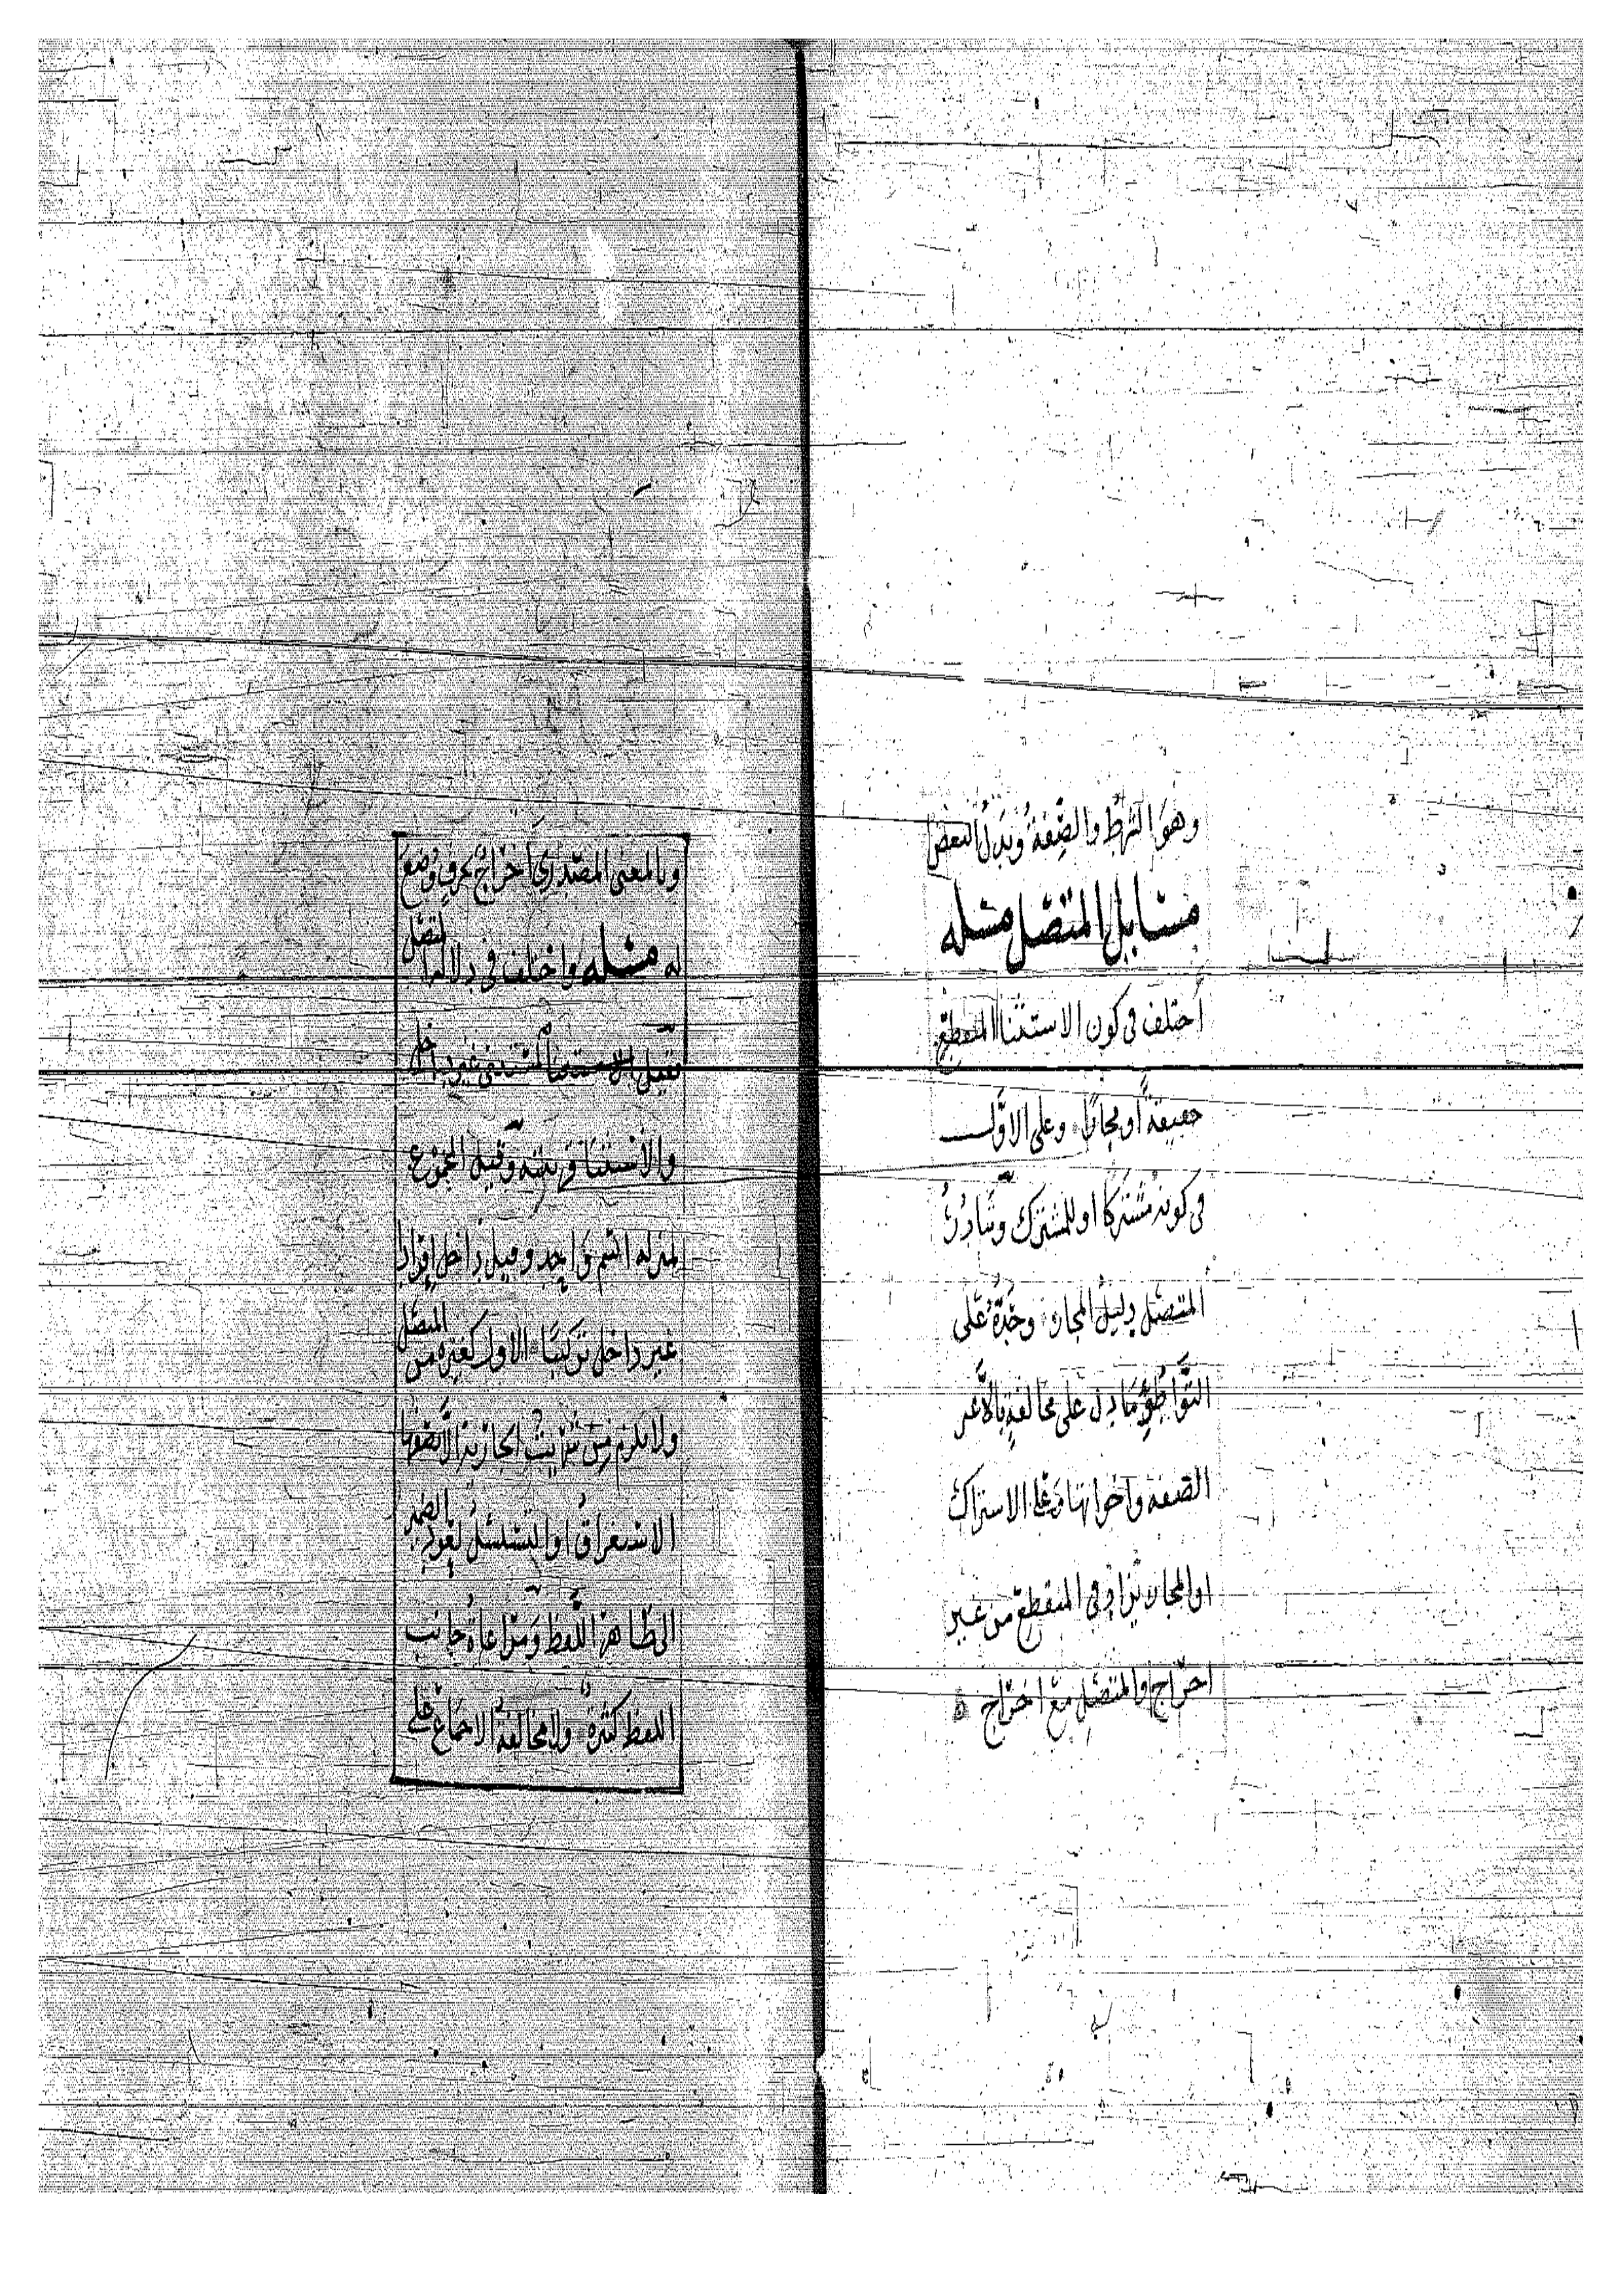 وهو الشرط والصفة وبدل البعض
مسايل المتصل مسله
اختلف في كون الاستثنا المنقطع
حقيقة أو مجازا وعلى الاول
في كونه مشتركا او للمشترك وتبادر
المتصل دليل المجاز وحده على
التواطؤ ما دل على مخالفة بالا غير
الصفه واخواتها وعلى الاشتراك
او المجاز يزاد في المنقطع من غير
اخراج والمتصل مع اخراج
وبالمعنى المصدري اخراج بحرف وضع
له مسله واختلف في دلاله المتصل
فقيل غير داخل
والاستثنا قرينته وقيل المجموع
بمنزله اسم واحد وقيل داخل افرادا
غير داخل تركيبا الاول كغيره من المتصل
ولا يلزم من الجاريه الا نصفها
الاستغراق او التسلسل لعود الضمير
الى ظاهر اللفظ ومراعاة جانب
اللفظ كثيرة ولا مخالفة الاجماع على